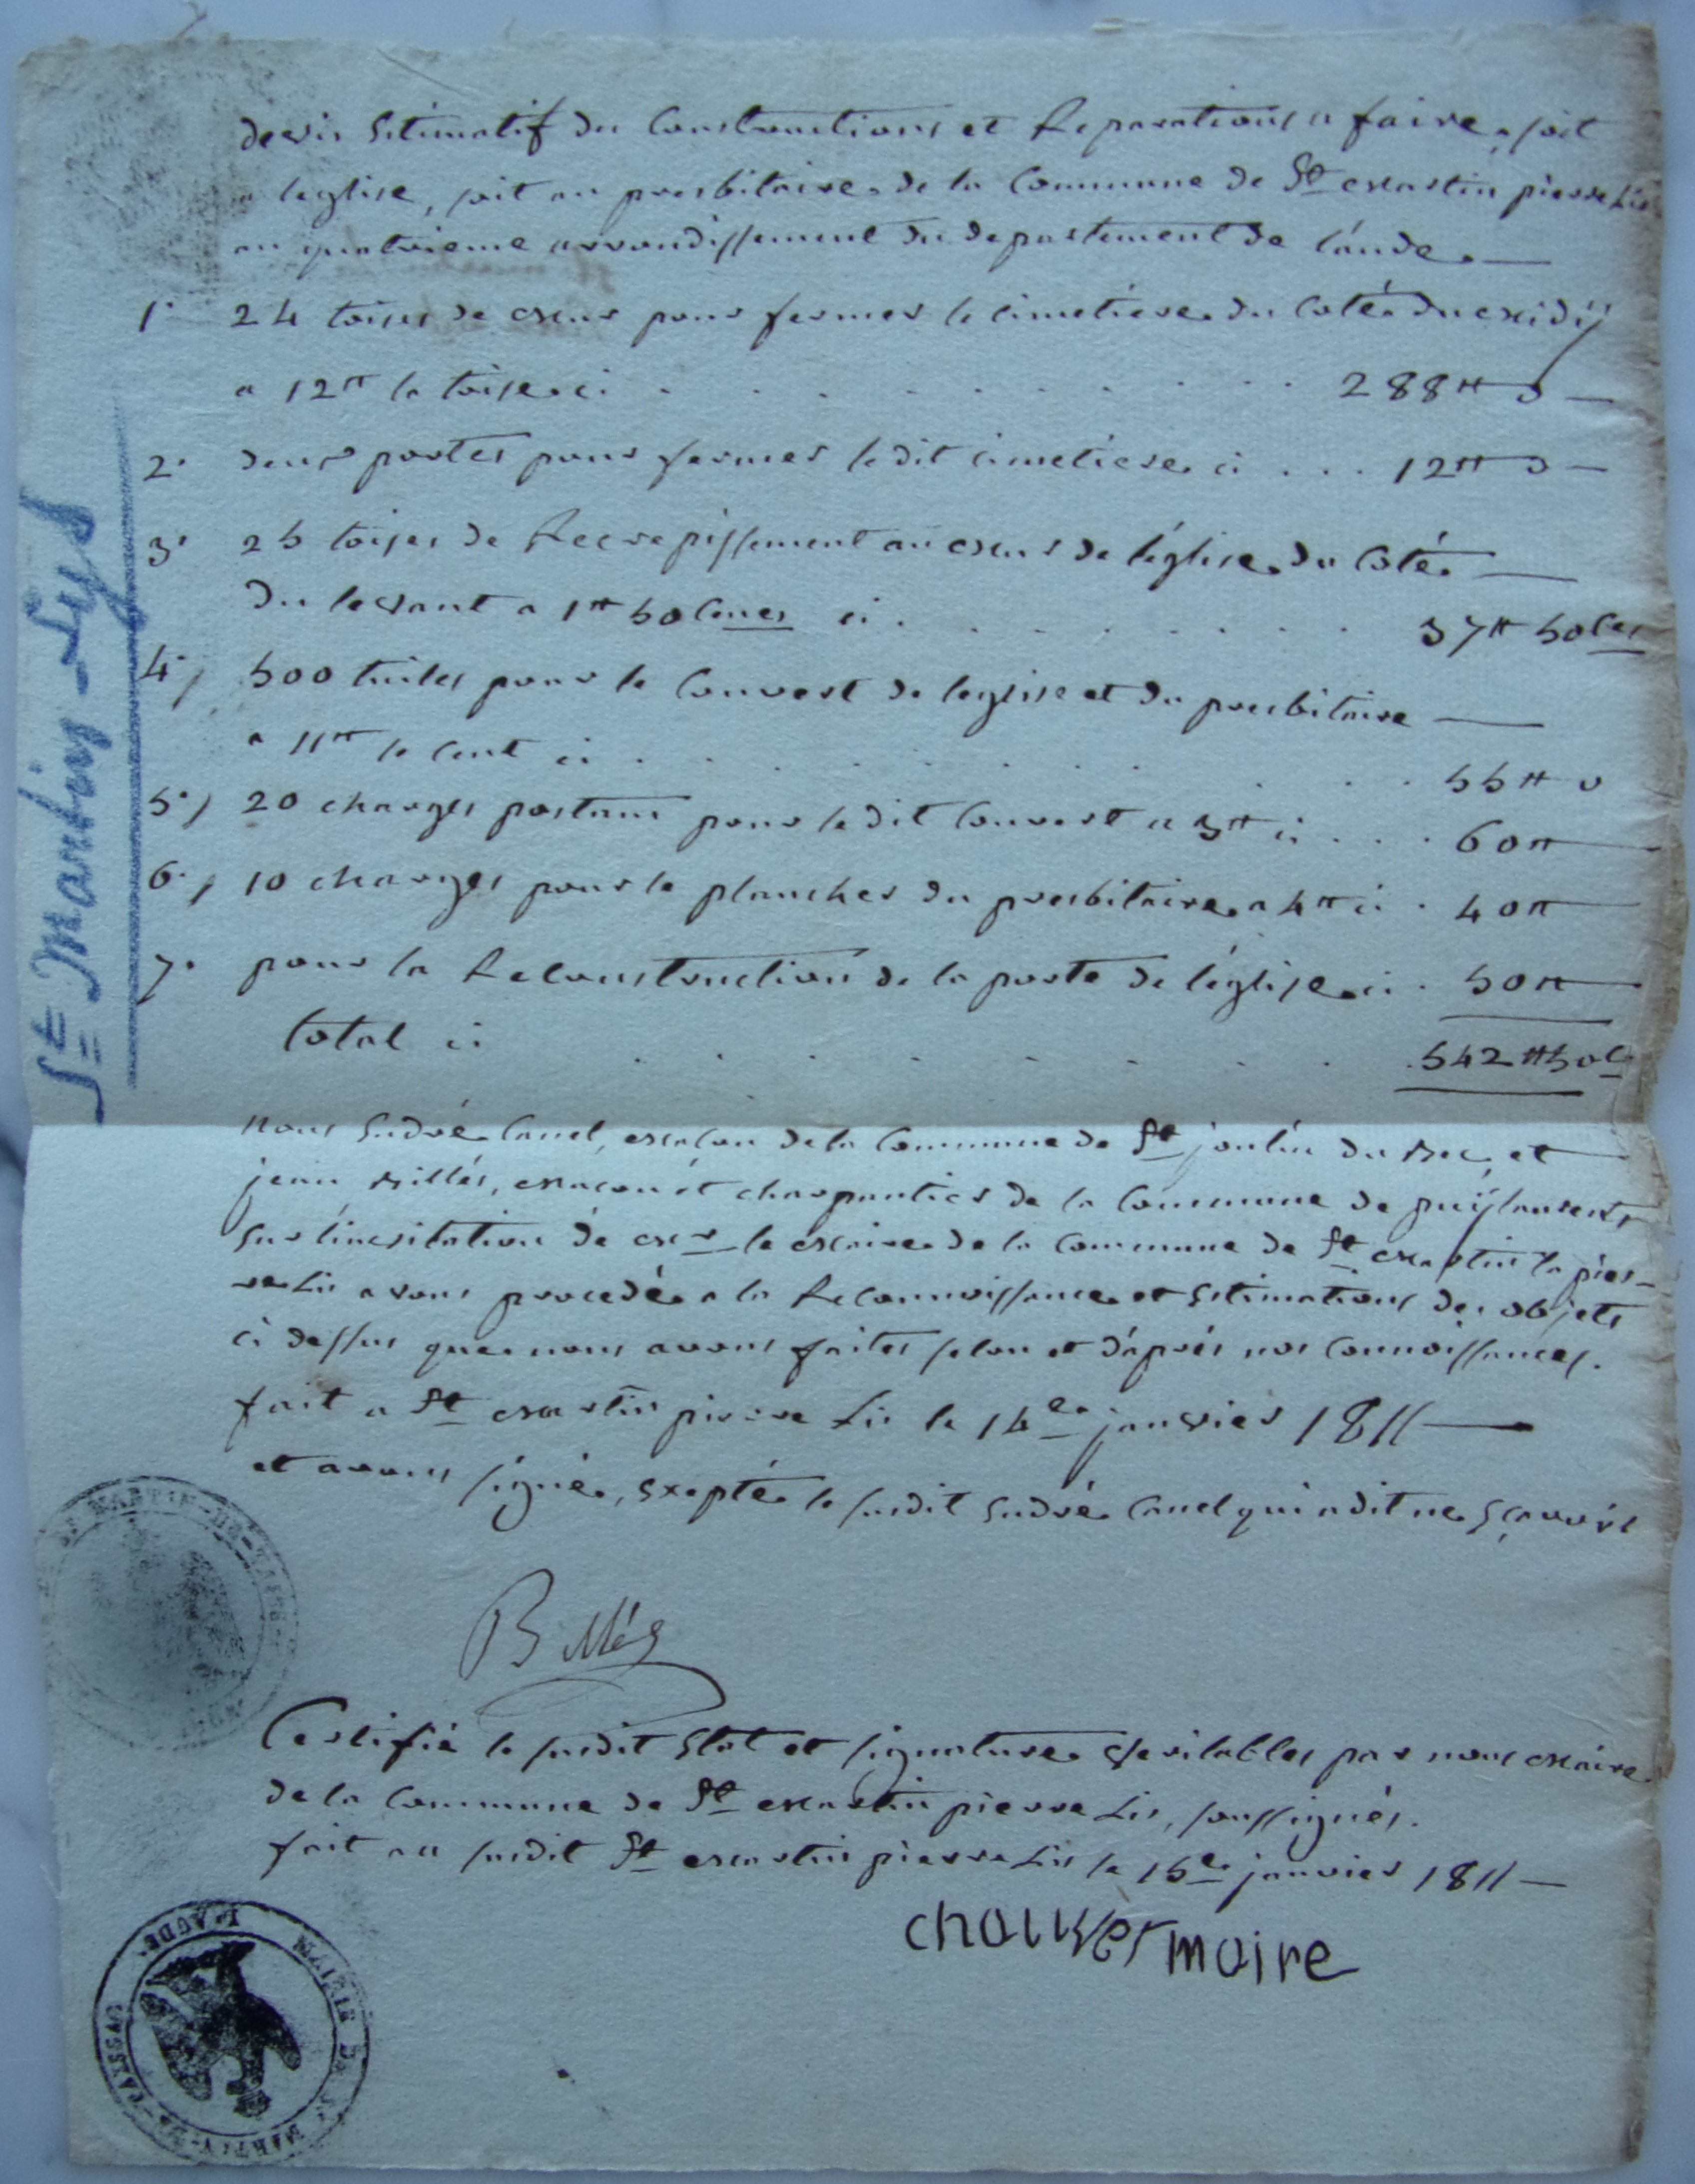 devis Estimatif des Constructions et Reparations a faire, soit
a leglise, soit au presbitaire de la Commune de St Martin pierre Lis
au quatrieme arrondissement du departement de l'aude
1° 24 toises de Mur pour fermer le cimetiére du Coté du Midÿ
a 12tt la toise ci . . . . . . . . . . 288tt 0
2° deux portes pour fermer le dit cimetiére ci . . . 12tt 0
3° 25 toises de Recrepissement au Mur de l'église du Coté
du levant a 1tt 50 Cmes ci . . . . . . . 37tt 50 Ces
4° 500 tuiles pour le Couvert de leglise et du presbitaire
a 11tt le Cent ci . . . . . . . . . 55tt 0
5° 20 charges postam pour le dit Couvert a 3tt ci . . . 60tt
6° 10 charges pour le plancher du presbitaire a 4tt ci . 40tt
7° pour la Reconstruction de la porte de l'église ci . 50tt
total ci . . . . . . . . 542tt 50 Cs
Nous Endré Canel, Macon de la Commune de St julia du Bec, et
jean Billés, Macon et charpantier de la Commune de puÿlaurens
Sur l'invitation de Mr le Maire de la Commune de St Martin la pier-
re Lis avons procedé a la Reconnoissance et Estimations des objets
ci dessus que nous avons faites selon et d'aprés nos Connoissances.
fait a St Martin pierre Lis le 14e janvier 1811
et avons signé, Exepté le susdit Endré Canel qui a dit ne Sçavoir
Billés
Certifié le susdit Etat et signature veritables par nous Maire
de la Commune de St Martin pierre Lis, soussignés.
fait au susdit St Martin pierre Lis le 15e janvier 1811
chauvet maire
St Martin-Lys
MAIRIE DE ST MARTIN-DE-TAISSAC
L'AUDE